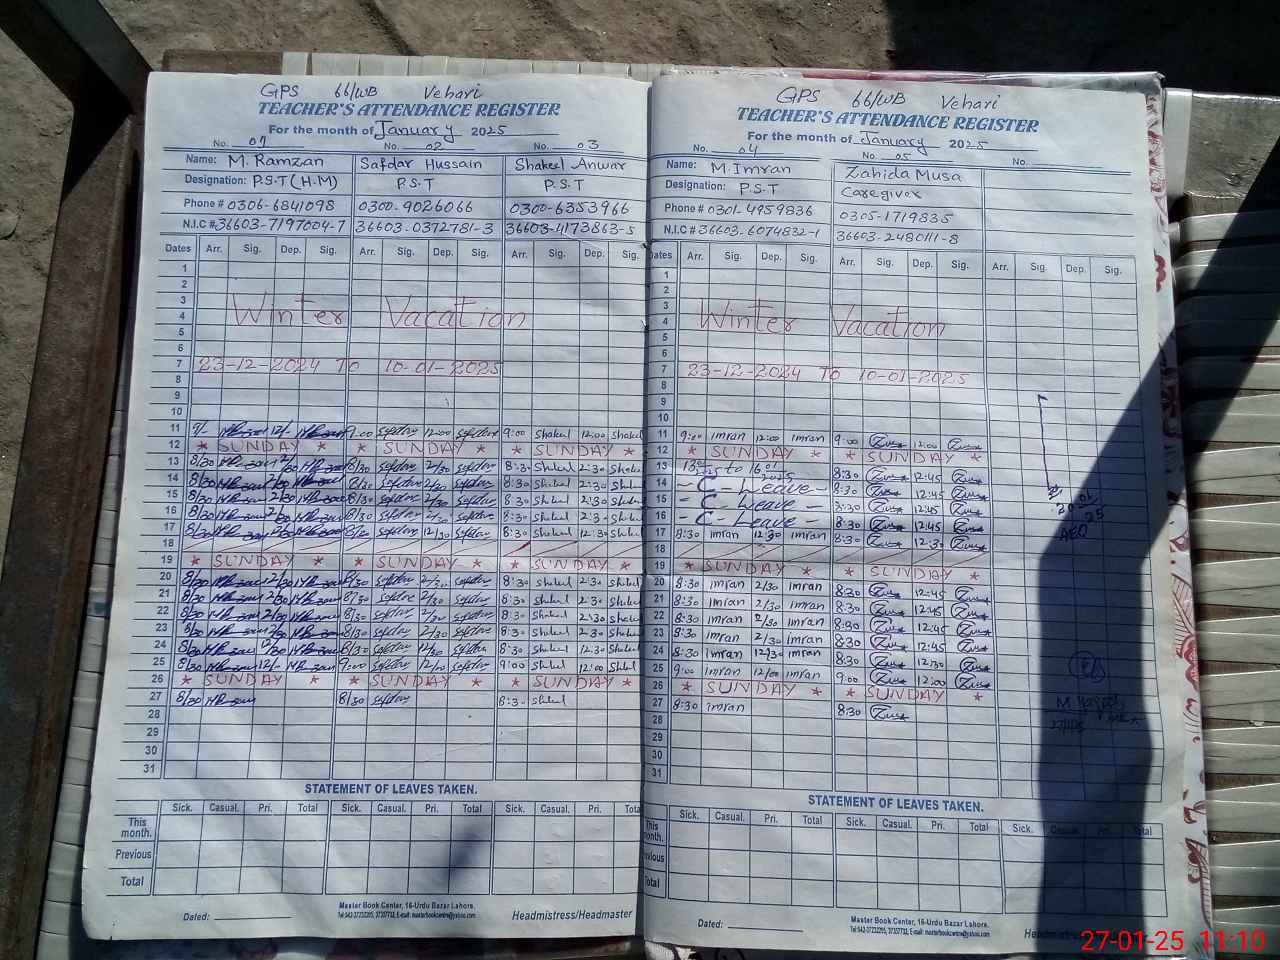 GPS 66/WB Vehari
TEACHER'S ATTENDANCE REGISTER
For the month of January 2025
No. 01 No. 02 No. 03
Name: M. Ramzan Safdar Hussain Shakeel Anwar
Designation: P.S.T (H.M) P.S.T P.S.T
Phone # 0306-6841098 0300-9026066 0300-6353966
N.I.C # 36603-7197004-7 36603-0372781-3 36603-4173863-5
Dates Arr. Sig. Dep. Sig. Arr. Sig. Dep. Sig. Arr. Sig. Dep. Sig.
1
2
3
4 Winter Vacation
5
6
7 23-12-2024 To 10-01-2025
8
9
10
11 9:00 12:00 9:00 shakeel 12:00 shakeel
12 * SUNDAY * * SUNDAY * * SUNDAY *
13 8/30 2/30 8/30 safdar 2/30 safdar 8:30 shakeel 2:30
14 8/30 2/30 8/30 safdar 2/30 safdar 8:30 shakeel 2:30
15 8/30 2/30 8/30 safdar 2/30 safdar 8:30 shakeel 2:30
16 8/30 2/30 8/30 safdar 2/30 safdar 8:30 shakeel 2:30
17 8/30 12/30 8:30 shakeel 12:30
18
19 * SUNDAY * * SUNDAY * * SUNDAY *
20 8/30 2/30 8/30 safdar 2/30 safdar 8:30 shakeel 2:30
21 8/30 2/30 8/30 safdar 2/30 safdar 8:30 shakeel 2:30
22 8/30 2/30 8/30 safdar 2/30 safdar 8:30 shakeel 2:30
23 8/30 2/30 8/30 safdar 2/30 safdar 8:30 shakeel 2:30
24 8/30 8/30 safdar safdar 8:30 shakeel 12:30
25 8/30 12/- 9:00 safdar safdar 9:00 shakeel 12:00
26 * SUNDAY * * SUNDAY * * SUNDAY *
27 8/30 8/30 safdar 8:30 shakeel
28
29
30
31
STATEMENT OF LEAVES TAKEN.
Sick. Casual. Pri. Total Sick. Casual. Pri. Total Sick. Casual. Pri. Total
This month.
Previous
Total
Master Book Center, 16-Urdu Bazar Lahore.
Dated: Headmistress/Headmaster
GPS 66/WB Vehari
TEACHER'S ATTENDANCE REGISTER
For the month of January 2025
No. 04 No. 05 No.
Name: M. Imran Zahida Musa
Designation: P.S.T Caregiver
Phone # 0301-4959836 0305-1719835
N.I.C # 36603-6074832-1 36603-2480111-8
Dates Arr. Sig. Dep. Sig. Arr. Sig. Dep. Sig. Arr. Sig. Dep. Sig.
1
2
3
4 Winter Vacation
5
6
7 23-12-2024 To 10-01-2025
8
9
10
11 9:00 imran 12:00 imran 9:00 12:00
12 * SUNDAY * * SUNDAY *
13 8:30 12:45
14 - C - Leave - 8:30 12:45
15 - C - Leave - 8:30 12:45
16 - C - Leave - 8:30 12:45
17 8:30 imran 12:30 imran 8:30 12:30
18
19 * SUNDAY * * SUNDAY *
20 8:30 imran 2/30 imran 8:30 12:45
21 8:30 imran 2/30 imran 8:30 12:45
22 8:30 imran 2/30 imran 8:30 12:45
23 8:30 imran 2/30 imran 8:30 12:45
24 8:30 imran 12/30 imran 8:30 12/30
25 9:00 imran 12/00 imran 9:00 12:00
26 * SUNDAY * * SUNDAY *
27 8:30 imran 8:30
28
29
30
31
STATEMENT OF LEAVES TAKEN.
Sick. Casual. Pri. Total Sick. Casual. Pri. Total Sick. Casual. Pri. Total
This month.
Previous
Total
Master Book Center, 16-Urdu Bazar Lahore.
Dated:
27-01-25 11:10